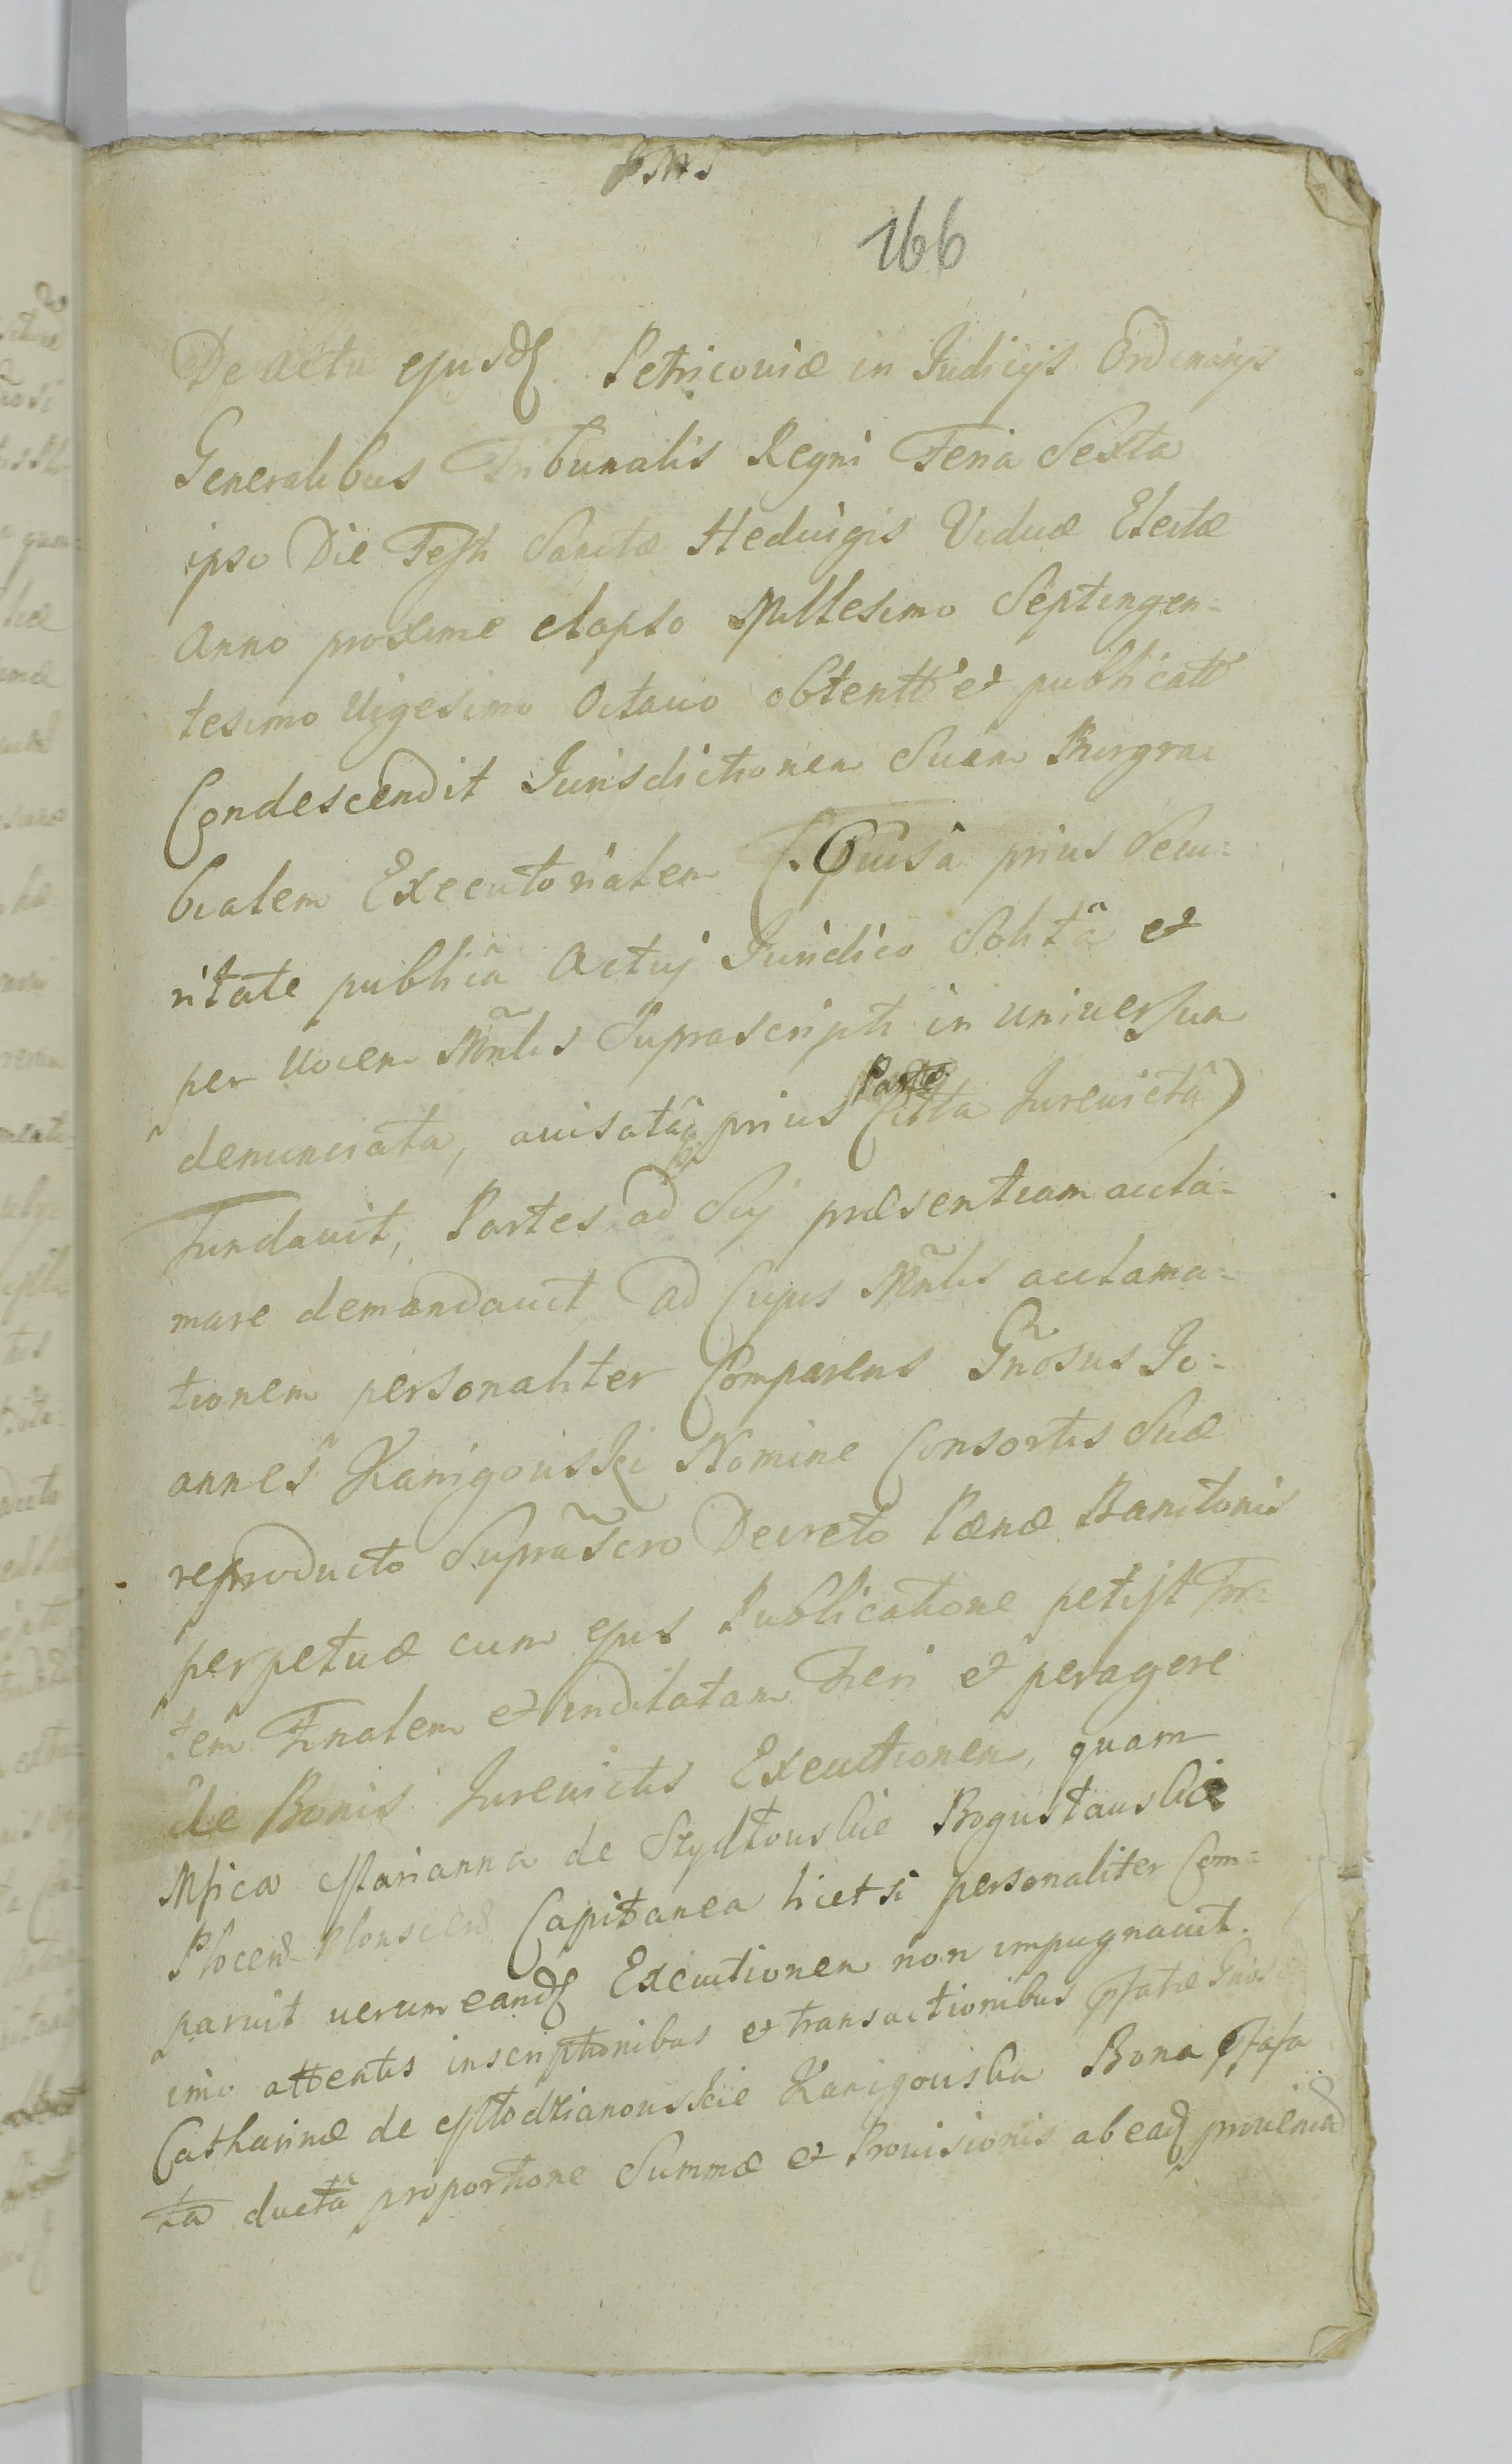 JMS
166
De actu ejusd Petricoviæ in Judicijs Ordinarijs
Generalibus Tribunalis Regni Feria Sexta
ipso Die Festi Sanctæ Heduigis Viduæ Electæ
Anno proxime elapso Millesimo Septingen-
tesimo Vigesimo Octavo obtentt et publicatt
Condescendit Jurisdictionem Suam Burgra
bialem Executorialem (Quisa prius Secu:
ritate publicâ Actuj Juridico Solitâ et
per Vocem Mñlis Suprascripti in universum
denunciata, avisatâ prius Parte Citta Jurevictâ)
Fundavit, Partes ad Suj præsentiam accla-
mare demandavit ad Cujus Mñlis acclama-
tionem personaliter Comparens Gñosus Jo:
annes Karigowski Nomine Consortis Suæ
reproducto Suprãscro Decreto Pænæ Banitionis
perpetuæ cum ejus Publicatione petijt For:
tem Finalem et indilatam Fieri et peragere
de Bonis Jurevictis Executionem, quam
Mfica Marianna de Szydłowskie Bogusławska
Plocen Plonscen Capitanea licet si personaliter Com:
paruit verum eand Executionem non impugnavit.
imo attentis inscriptionibus et transactionibus pfatæ Gnosæ
Catharinæ de Młodzianowskie Karigowska Bona pfata
ta ductâ proportione Summæ et Provisionis ab ead provenien